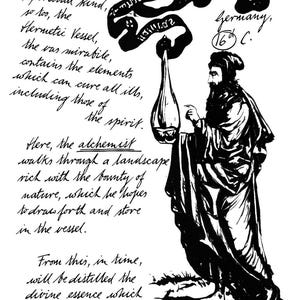 so too, the
Hermetic Vessel,
the vas mirabile,
contains the elements
which can cure all ills,
including those of
the spirit.
Here, the alchemist
walks through a landscape
rich with the bounty of
nature, which he hopes
to draw forth and store
in the vessel.
From this, in time,
will be distilled the
divine essence which
Germany,
16 C.